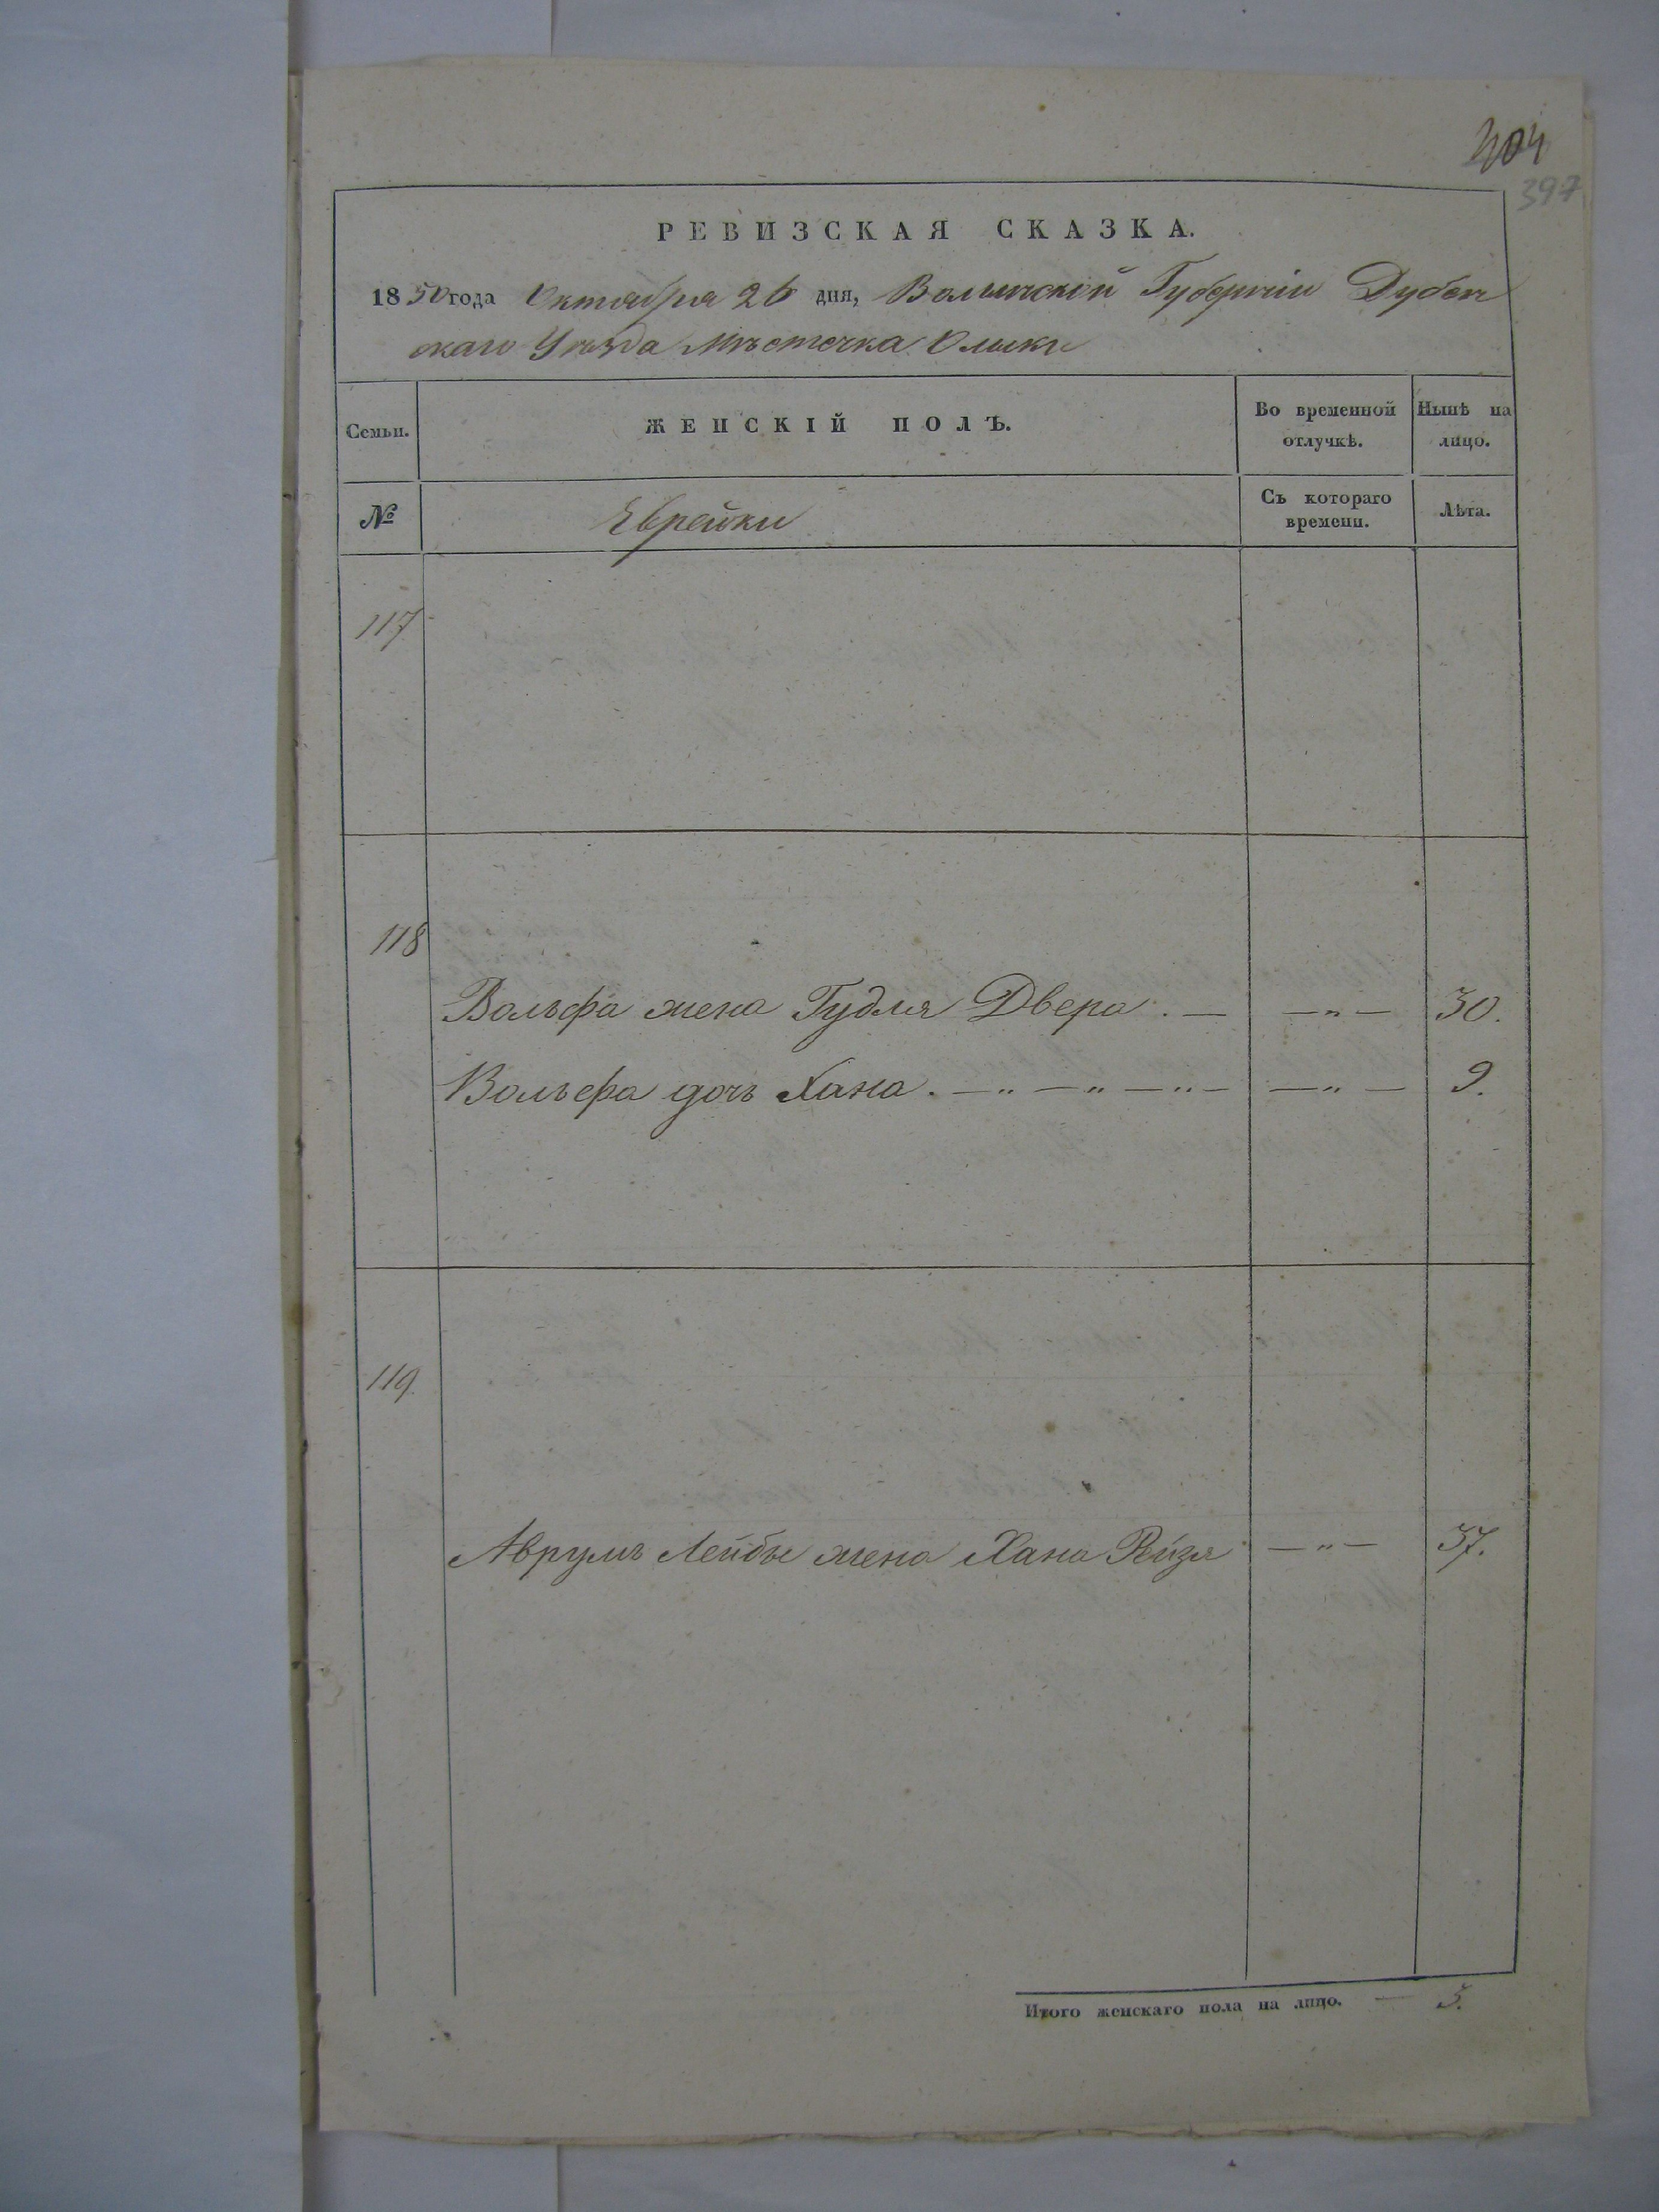 404
397
РЕВИЗСКАЯ СКАЗКА.
1850 года Октября 26 дня, Волынской Губерніи Дубен
скаго Уѣзда Мѣстечка Олыки
Семьи.
ЖЕНСКІЙ ПОЛЪ.
Во временной отлучкѣ.
Нынѣ на лицо.
№
Еврейки
Съ котораго времени.
Лѣта.
117
118
Вольфа жена Гудля Двера . — — „ — 30.
Вольфа дочь Хана . — „ — „ — „ — — „ — 9.
119.
Аврумъ Лейбы жена Хана Рейзя — „ — 37.
Итого женскаго пола на лицо. — 3.